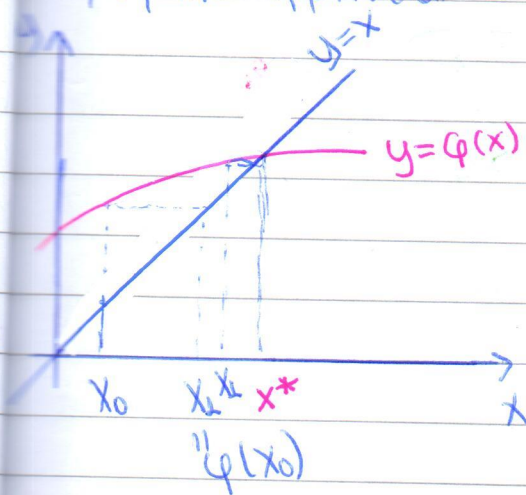 y
y=x
y=φ(x)
x₀ x₁ x₂ x* x
"φ(x₀)